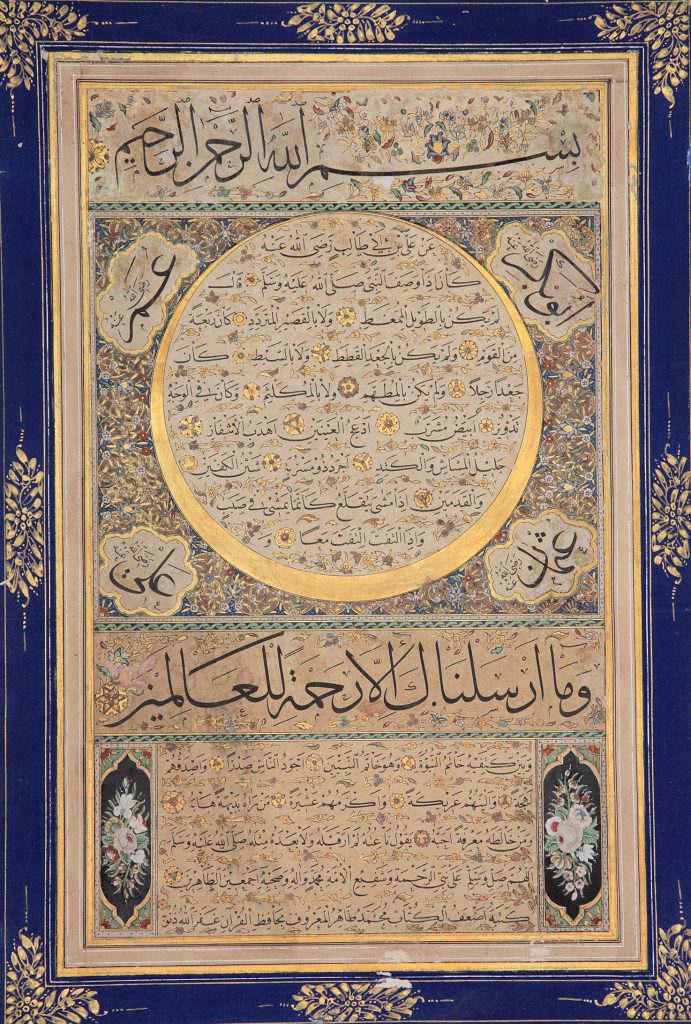 بسم الله الرحمن الرحيم
ابو بكر رضي الله عنه
عمر رضي الله عنه
عن علي بن ابي طالب رضي الله عنه
كان اذا وصف النبي صلى الله عليه وسلم قال
لم يكن بالطويل الممغط ولا بالقصير المتردد كان ربعة
من القوم ولم يكن بالجعد القطط ولا بالسبط كان
جعدا رجلا ولم يكن بالمطهم ولا بالمكلثم وكان في الوجه
تدوير ابيض مشرب ادعج العينين اهدب الاشفار
جليل المشاش والكتد اجرد ذو مسربة شثن الكفين
والقدمين اذا مشى يتقلع كانما يمشي في صبب
واذا التفت التفت معا و
عثمان رضي الله عنه
علي رضي الله عنه
وما ارسلناك الا رحمة للعالمين
وبين كتفيه خاتم النبوة وهو خاتم النبيين اجود الناس صدرا واصدقهم
لهجة والينهم عريكة واكرمهم عشيرة من رآه بديهة هابه
ومن خالطه معرفة احبه يقول ناعته لم ار قبله ولا بعده مثله صلى الله عليه وسلم
اللهم صل وسلم على نبي الرحمة وشفيع الامة محمد وآله وصحبه اجمعين الطاهرين
كتبه اضعف الكتاب محمد طاهر المعروف بحافظ القرآن غفر الله ذنوبه